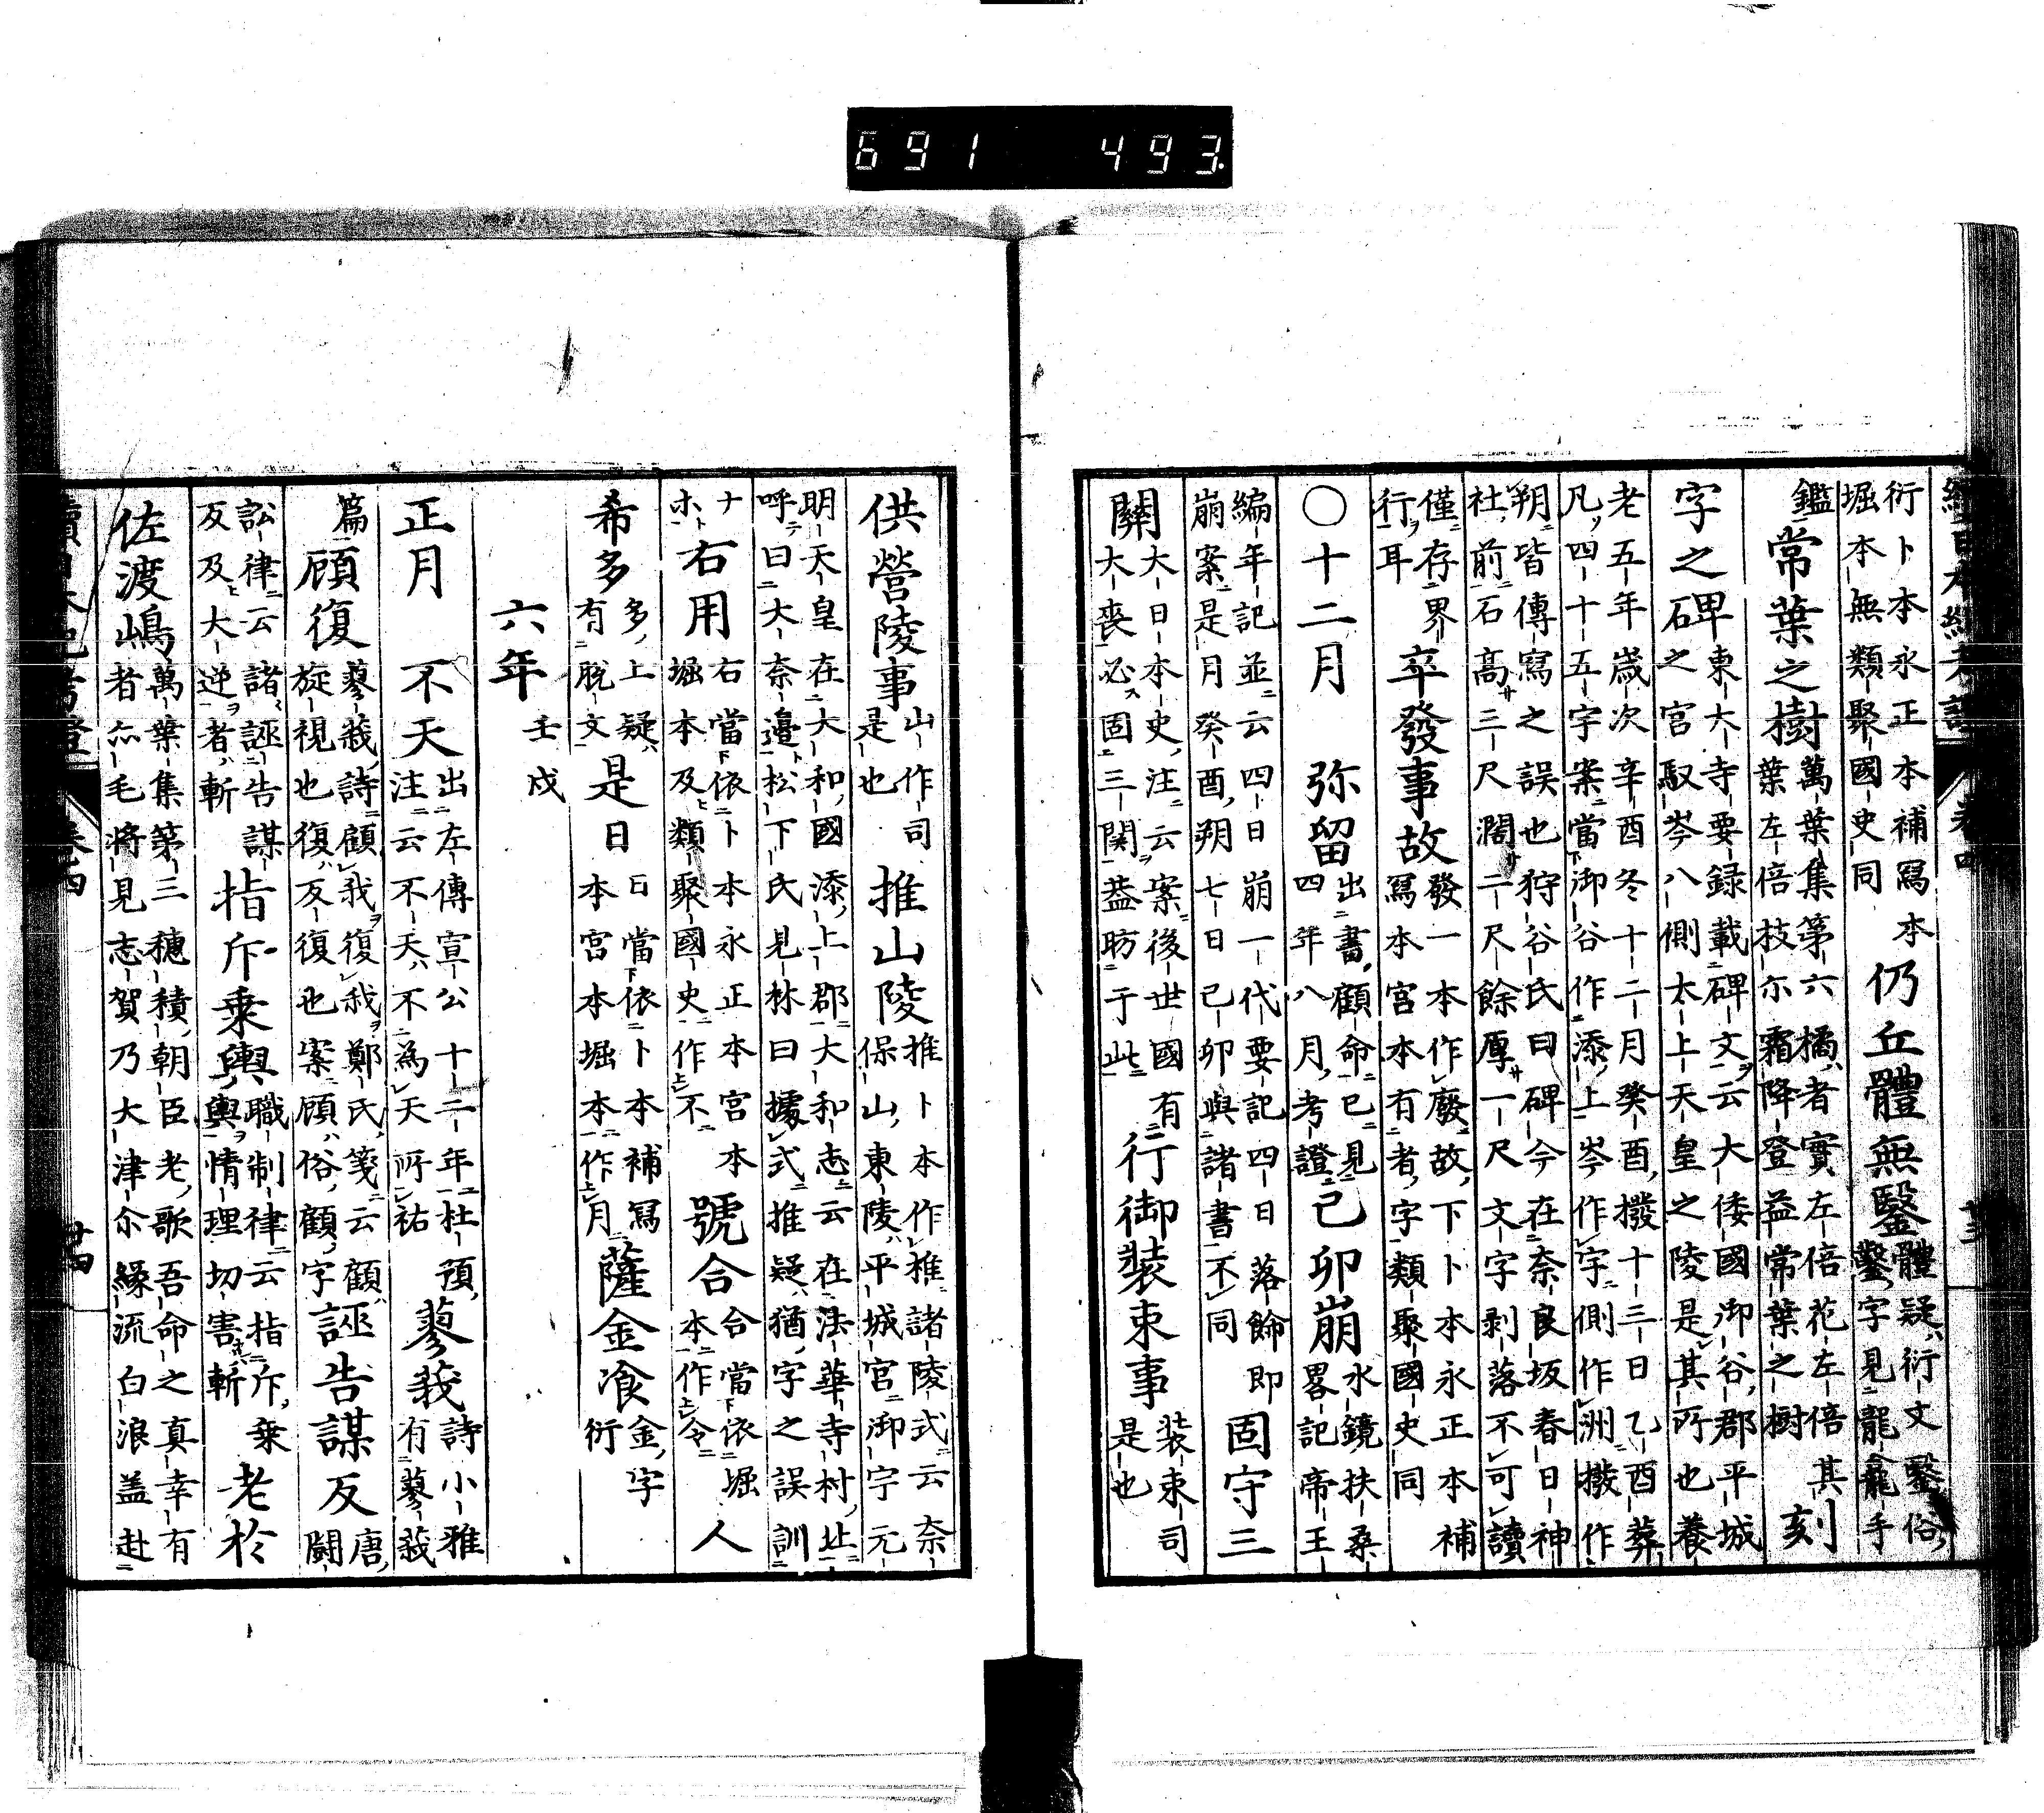 691 493
衍卜本永正本補寫本
堀本無類聚國史同
仍丘體無鑿
體疑衍文鑿俗
鑿字見龍龕手
鑑
常葉之樹
萬葉集第六橘者實左倍花左倍其
葉左倍枝尓霜降登益常葉之樹
刻
字之碑
東大寺要録載碑文云大倭國御谷郡平城
之宮馭岑八側太上天皇之陵是其所也養
老五年歲次辛酉冬十二月癸酉撥十三日乙酉葬
凡四十五字案當御谷作添上岑作宇側作洲撥作
朔皆傳寫之誤也狩谷氏曰碑今在奈良坂春日神
社前石高三尺濶二尺餘厚一尺文字剥落不可讀
僅存界
行耳
卒發事故
發一本作廢故下卜本永正本補
寫本宮本有者字類聚國史同
〇十二月
弥留
出書顧命已見
四年八月考證
己卯崩
水鏡扶桑
畧記帝王
編年記並云四日崩一代要記四日落飾即
崩案是月癸酉朔七日己卯與諸書不同
固守三
關
大日本史注云案後世國有
大喪必固三関葢昉于此
行御裝束事
裝束司
是也
供營陵事
山作司
是也
推山陵
推卜本作椎諸陵式云奈
保山東陵平城宮御宇元
明天皇在大和國添上郡大和志云在法華寺村北
呼曰大奈邊松下氏見林曰據式推疑猶字之誤訓
ナ
ホ
右用
右當依卜本永正本宮本
堀本及類聚國史作不
號合
合當依堀
本作令
人
希多
多上疑
有脱文
是日
日當依卜本補寫
本宮本堀本作月
薩金飡
金字
衍
六年
壬戌
正月
不天
出左傳宣公十二年杜預
注云不天不為天所祐
蓼莪
詩小雅
有蓼莪
篇
顧復
蓼莪詩顧我復我鄭氏箋云顧
旋視也復反復也案顧俗顧字
誣告謀反
唐
闘
訟律云諸誣告謀
反及大逆者斬
指斥乗輿
職制律云指斥乗
輿情理切害斬
老於
佐渡嶋
萬葉集第三穂積朝臣老歌吾命之真幸有
者亦毛将見志賀乃大津尓縁流白浪盖赴
卷四